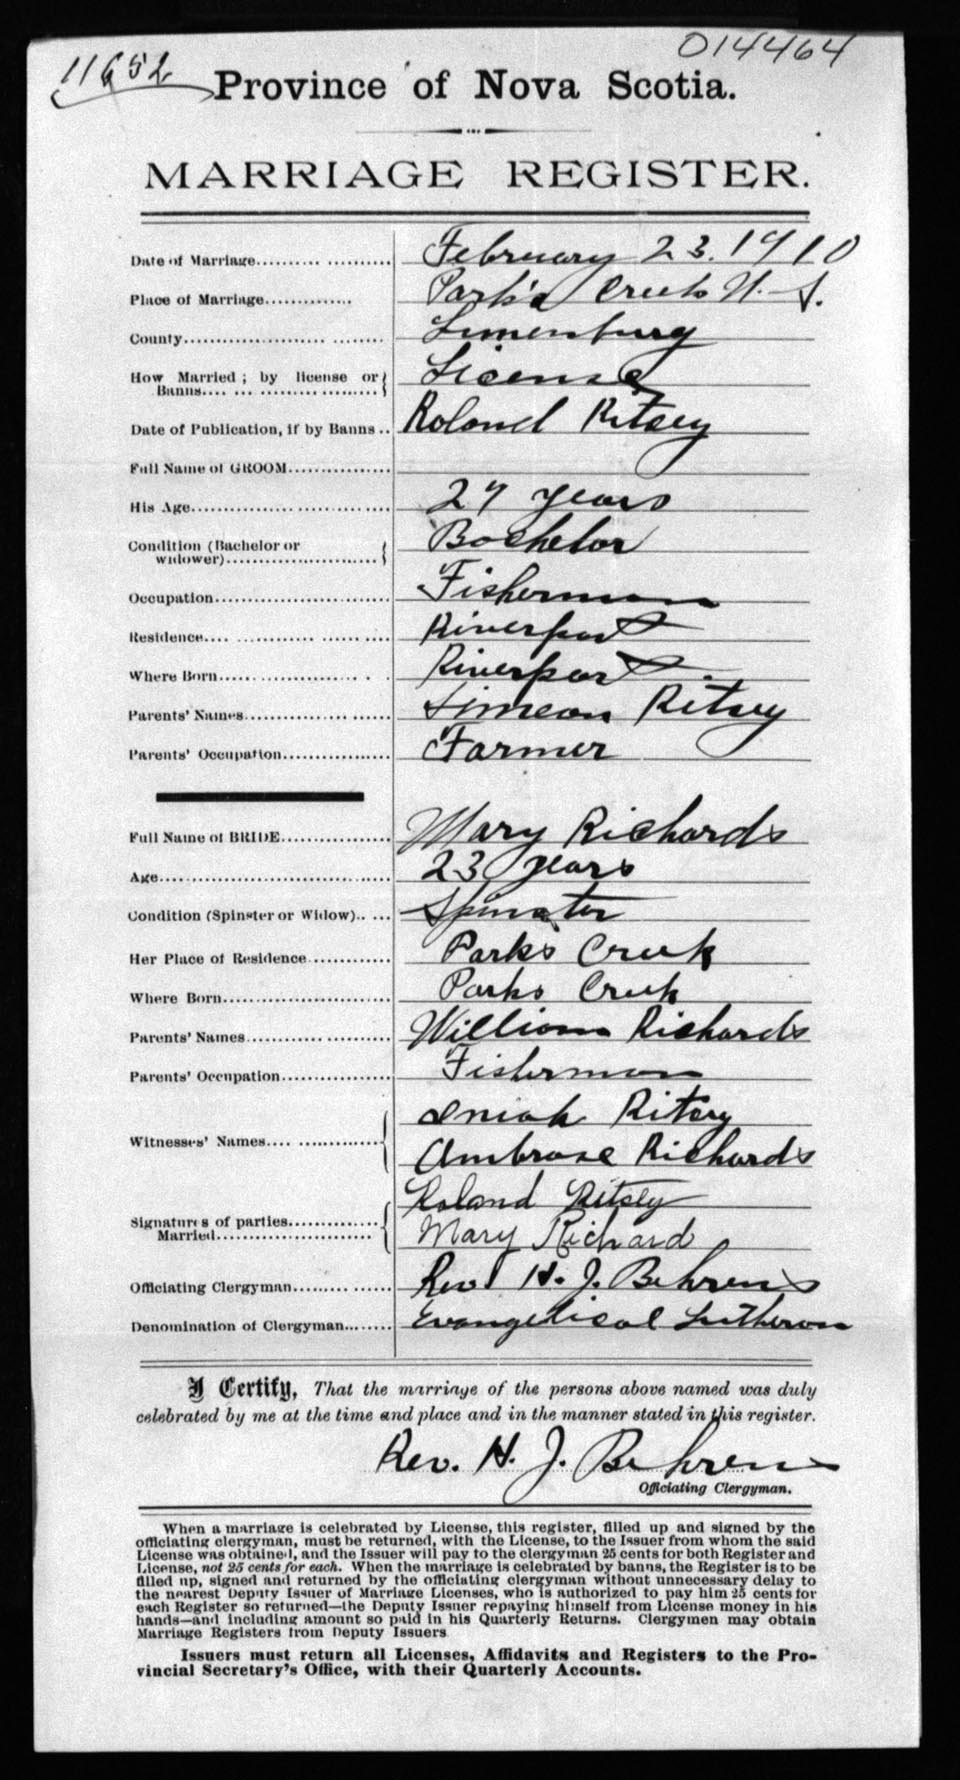 014464
11652
Province of Nova Scotia.
MARRIAGE REGISTER.
Date of Marriage.......... .......... February 23. 1910
Place of Marriage............. Park's Creek N. S.
County...................... ........ Lunenburg
How Married ; by license or } License
Banns.... ... ......................
Date of Publication, if by Banns .. Roland Ritsey
Full Name of GROOM...............
His Age................ .............. 27 years
Condition (Bachelor or } Bachelor
widower).......................
Occupation.......................... Fisherman
Residence.... ............ ...... ... Riverport
Where Born..... ............... . . Riverport
Parents' Names............... ...... Simeon Ritsey
Parents' Occupation................ Farmer
Full Name of BRIDE................ Mary Richards
Age.................................. 23 years
Condition (Spinster or Widow).. ... Spinster
Her Place of Residence ............ Parks Creek
Where Born......................... Parks Creek
Parents' Names........... .......... William Richards
Parents' Occupation................ Fisherman
Ritsey
Witnesses' Names.... ............. Ambrose Richards
Roland Ritsey
Signatures of parties...............
Married....................... Mary Richard
Officiating Clergyman......... ...... Rev H. J. Behrens
Denomination of Clergyman....... Evangelical Lutheran
I Certify, That the marriage of the persons above named was duly
celebrated by me at the time and place and in the manner stated in this register.
Rev. H. J. Behrens
Officiating Clergyman.
When a marriage is celebrated by License, this register, filled up and signed by the
officiating clergyman, must be returned, with the License, to the Issuer from whom the said
License was obtained, and the Issuer will pay to the clergyman 25 cents for both Register and
License, not 25 cents for each. When the marriage is celebrated by banns, the Register is to be
filled up, signed and returned by the officiating clergyman without unnecessary delay to
the nearest Deputy Issuer of Marriage Licenses, who is authorized to pay him 25 cents for
each Register so returned—the Deputy Issuer repaying himself from License money in his
hands—and including amount so paid in his Quarterly Returns. Clergymen may obtain
Marriage Registers from Deputy Issuers
Issuers must return all Licenses, Affidavits and Registers to the Pro-
vincial Secretary's Office, with their Quarterly Accounts.